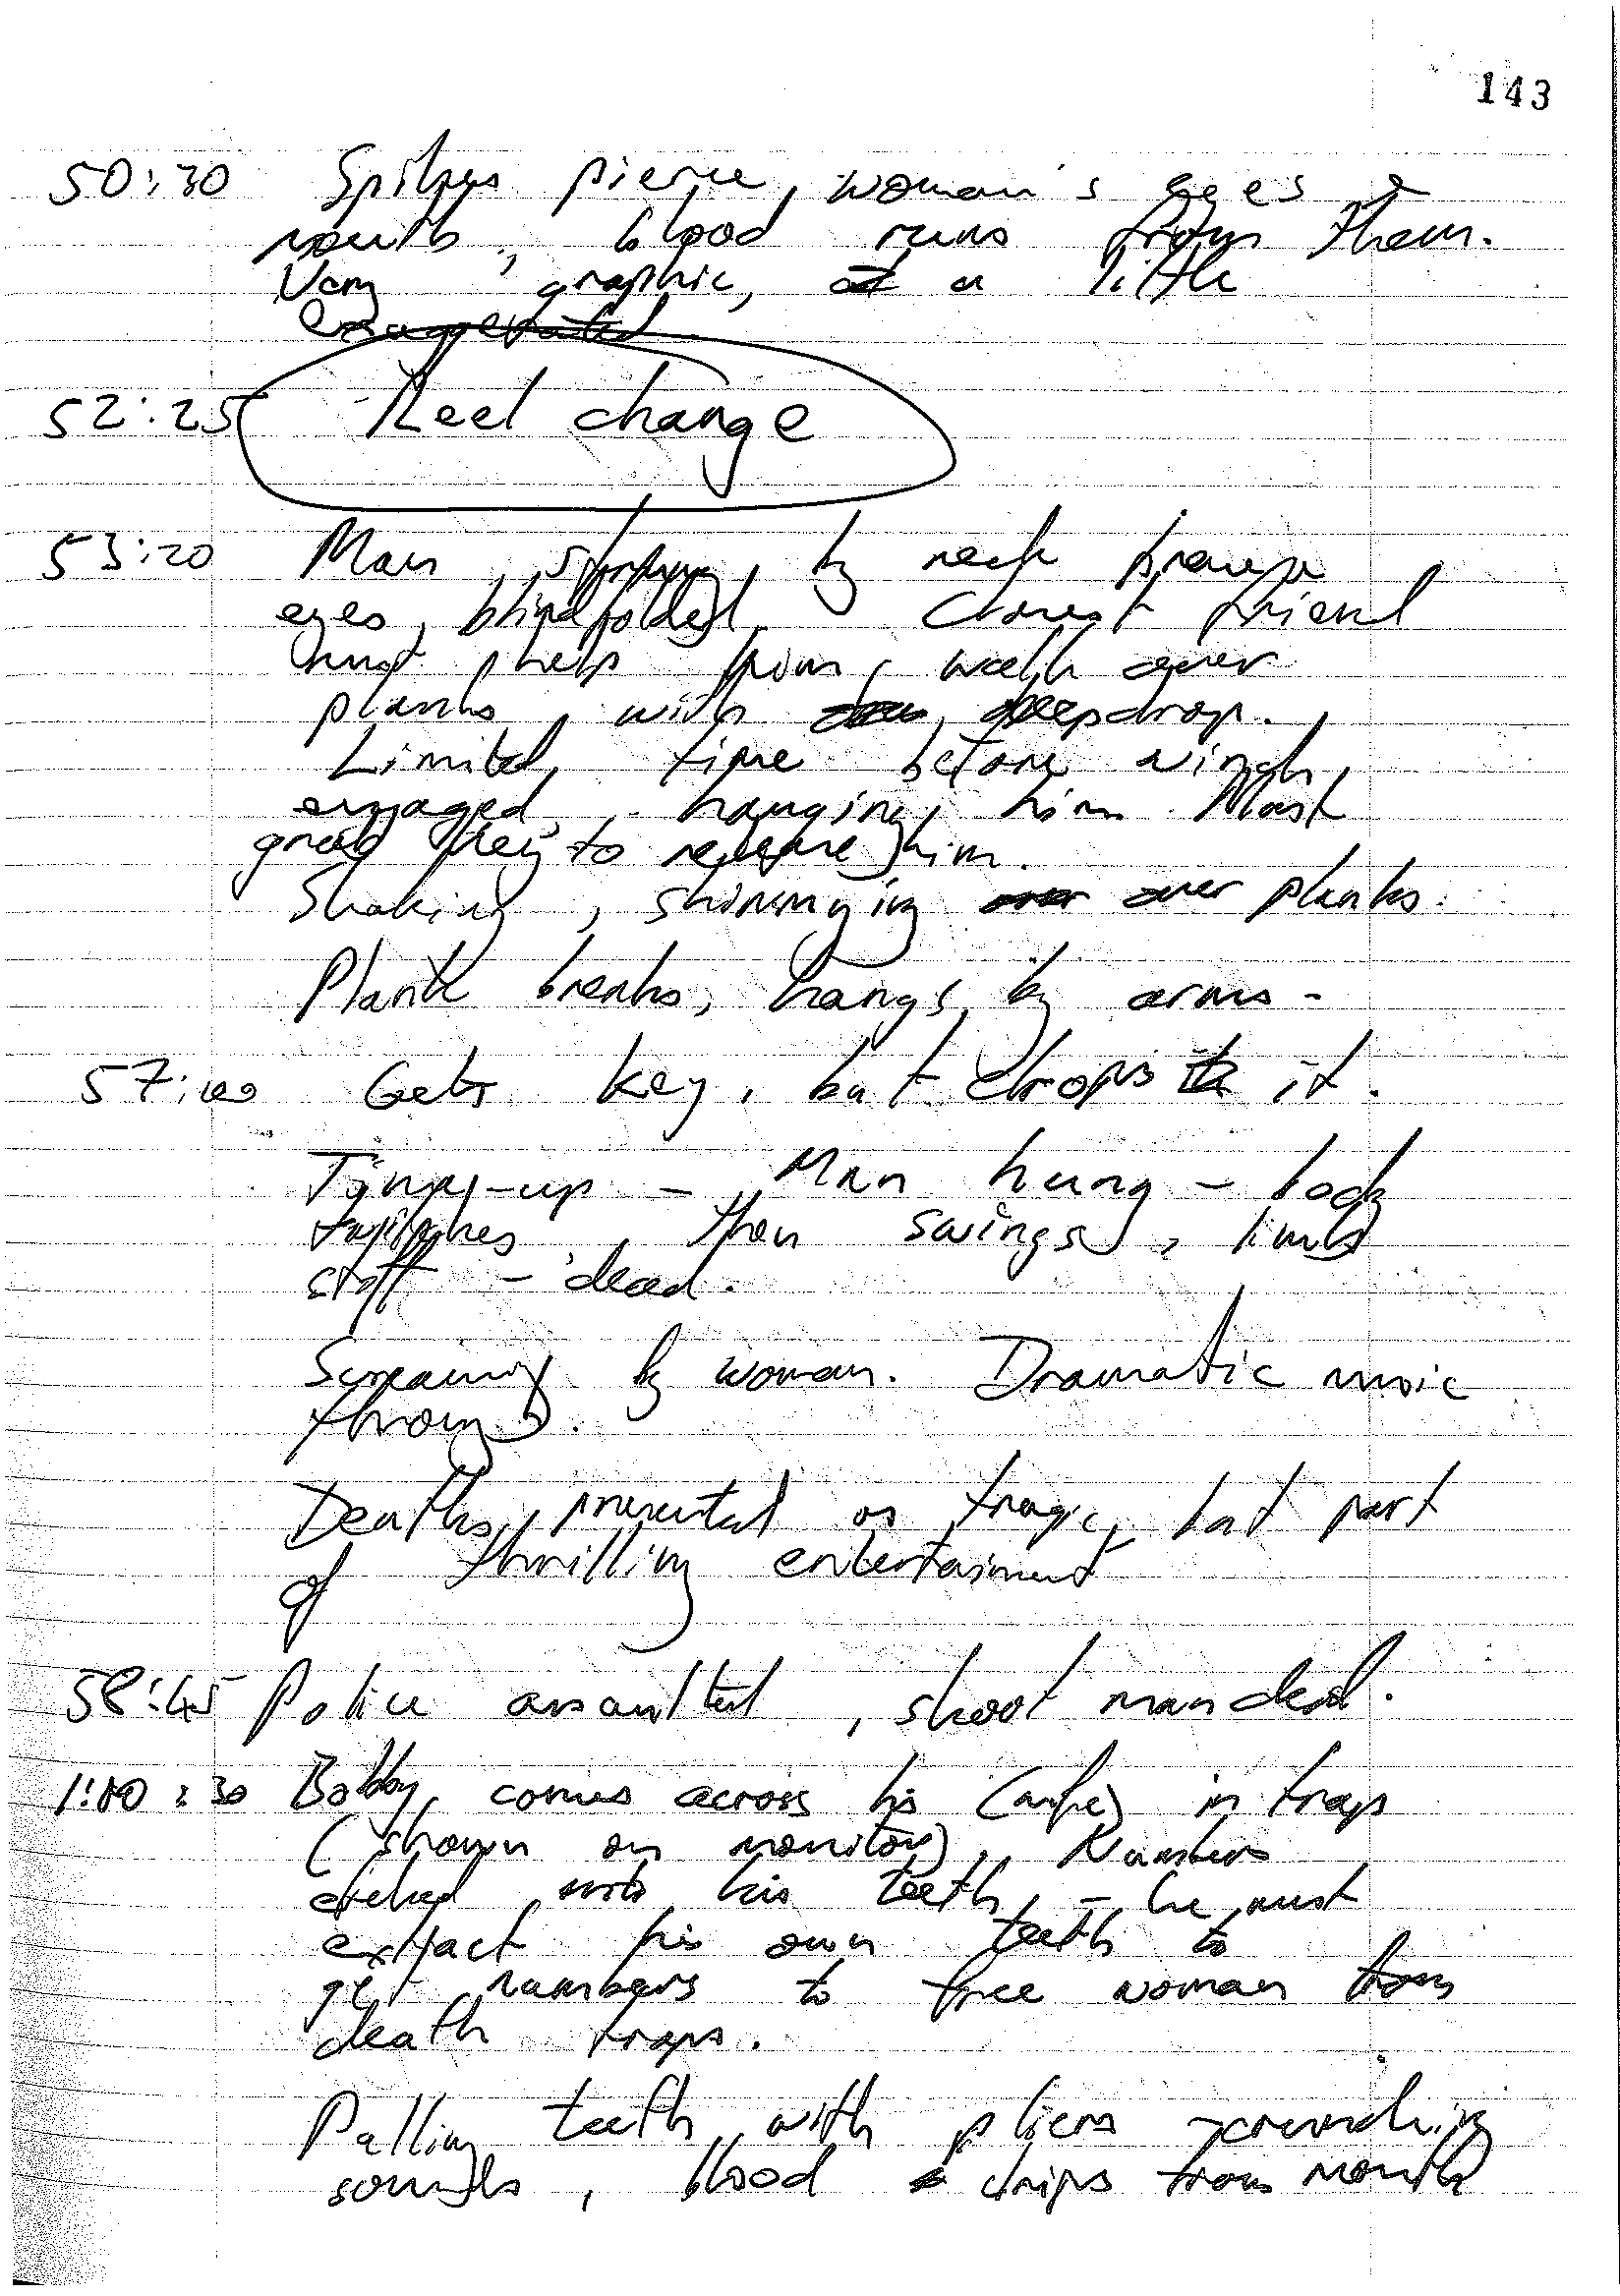 143
50:30 Spikes pierce woman's eyes &
mouth, blood runs from them.
Very graphic, a little
exaggerated
52:25 Reel change
53:20 Man by neck
eyes blindfolded. Closest friend
must help him walk over
planks, with deep drop.
Limited time before winch
engaged, hanging him. Must
grab key to release him.
Shaking, shimmying over over planks.
Plank breaks, hangs by arms -
57:00 Gets key, but drops it.
Time-up - Man hung - body
twitches, then swings, limbs
stiff - dead.
Screaming by woman. Dramatic music
through.
Deaths presented as tragic, but part
of thrilling entertainment
58:45 Police assaulted, shoot man dead.
1:00:30 Bobby comes across his (wife) in traps
(shown on monitor). Numbers
etched into his teeth, - he must
extract his own teeth to
get numbers to free woman from
death traps.
Pulling teeth with pliers - crunching
sounds, blood drips from mouth